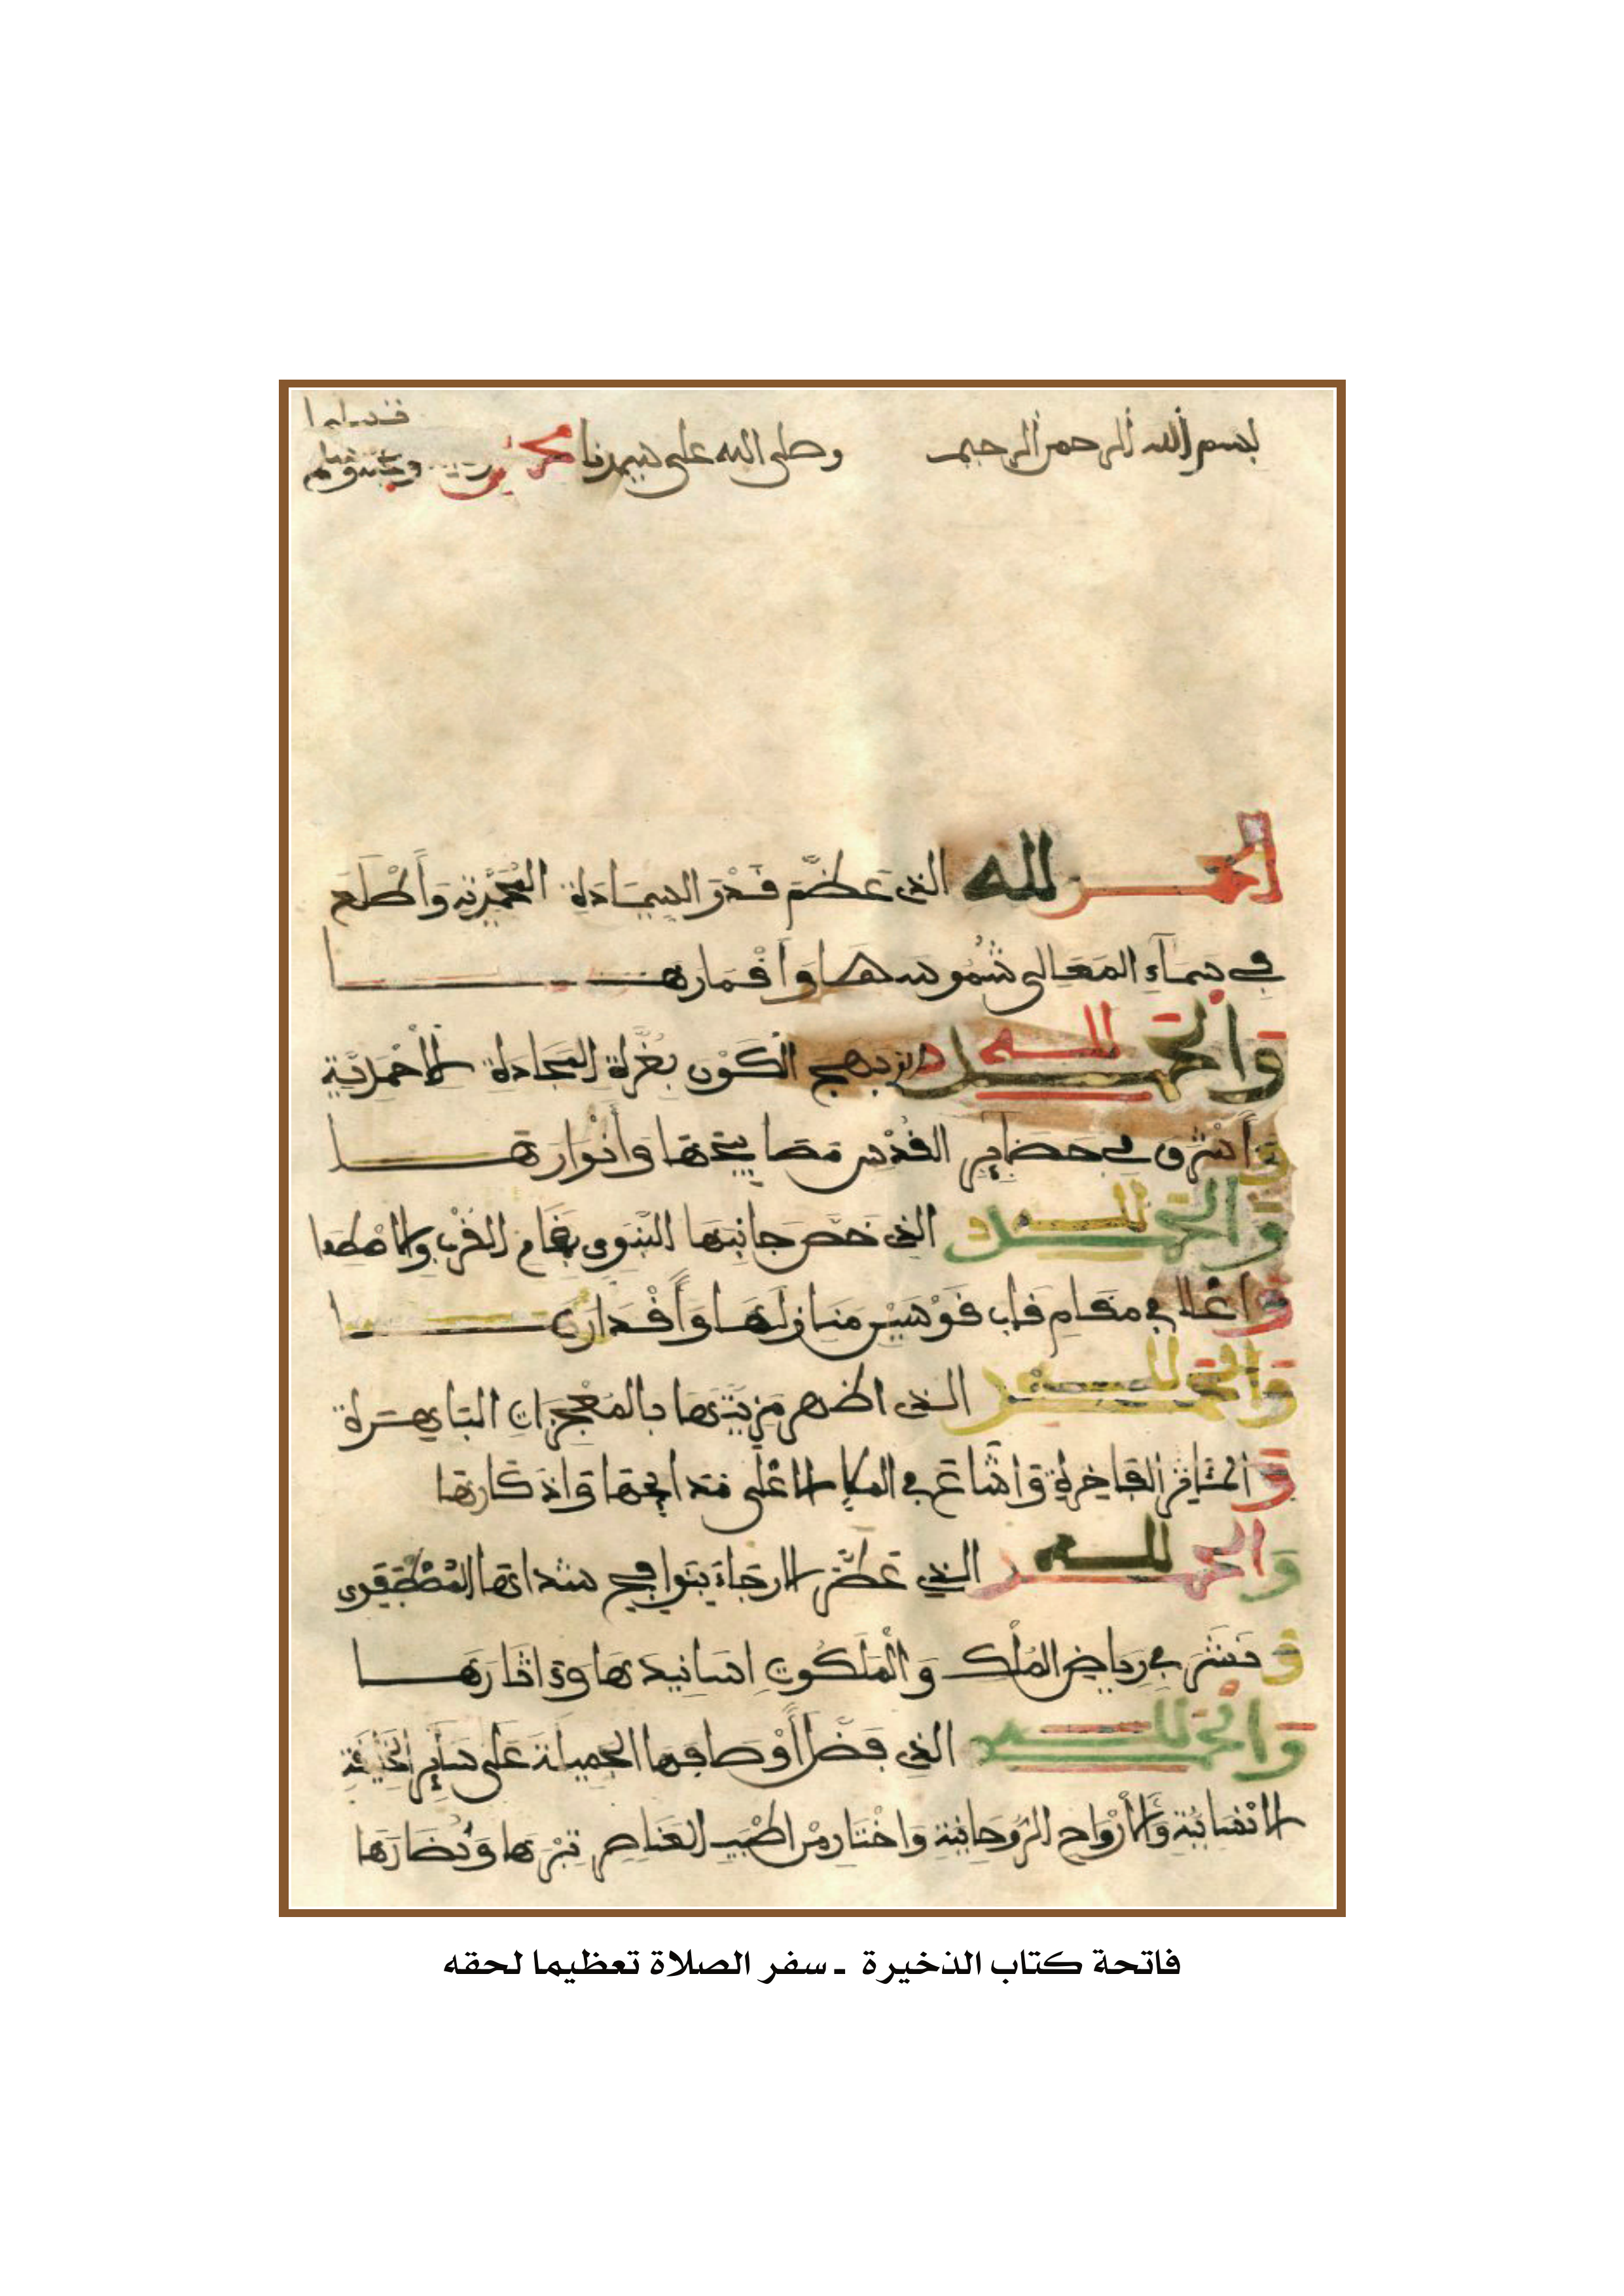 بسم الله الرحمن الرحيم وصلى الله على سيدنا محمد
الحمد لله الذي عَظَّمَ قَدْرَ السِّيَادَةِ المُحَمَّدِيَّة وَأَطْلَعَ
في سمَآءِ المَعَالي شُمُوسَهَا وَأَقْمَارهَا
وَالحَمْد لله الذي بهج الكَوْن بغُرَّة السَّعَادَة الأَحْمَدِيَّة
وَأَشْرَقَ في حضَاير القُدْس مصَابيحَهَا وَأَنْوَارهَا
وَالحَمْد لله الذي خصَّ جَانِبَهَا النَّبَوي بمَقَام القُرْب والاصْطِفَا
وَأَعْلا في مقَامِ قَاب قَوْسَيْن مَنَازلَهَا وَأَقْدَارهَا
وَالحَمْد لله الذي اظهر مَزِيَّتَهَا بالمُعْجِزَاتِ البَاهِرَة
وَالمَنَاقِر الفَاخِرَة وَأشَاعَ في الملإ الأعْلَى مَدَايِحَهَا وَاذْكَارهَا
وَالحمد لله الذي عَطَّر الارجَاءَ بنَوَافِح شذَاهَا المُصْطَفَوِي
وَنَشَر في رياضِ المُلْك وَالْمَلَكُوتِ اسَانيدَهَا وَءَاثَارَهَا
وَالحَمْد لله الذي فَضَّل أَوْصَافهَا الجَمِيلَة عَلَى سَاير
الانْسَانية وَالأَرْوَاح الرُّوحَانِية وَاخْتَار مِنْ اطْيَبِ العَنَاصِر تِبْرَهَا وَنُضَارَهَا
فاتحة كتاب الذخيرة ـ سفر الصلاة تعظيما لحقه